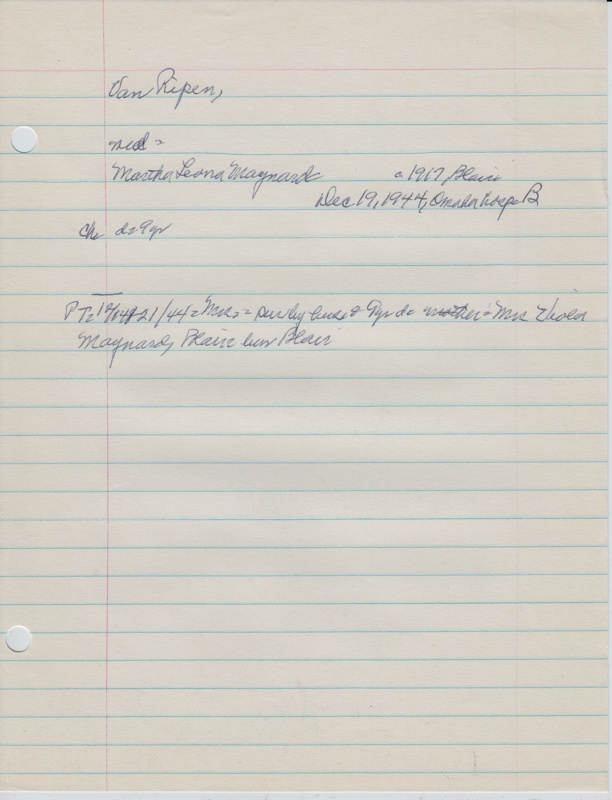 Van Ripen,
md =
Martha Leona Maynard a 1917 Blair
Dec 19, 1944, Omaha hosp B
Ch d= 9yr
PT= 21/44 = Mrs = sur by husb & 9yr d= mother = Mrs Viola
Maynard, Blair bur Blair